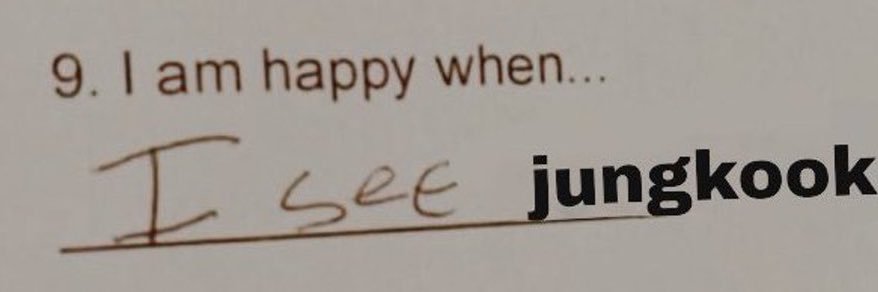 9. I am happy when...
I see jungkook